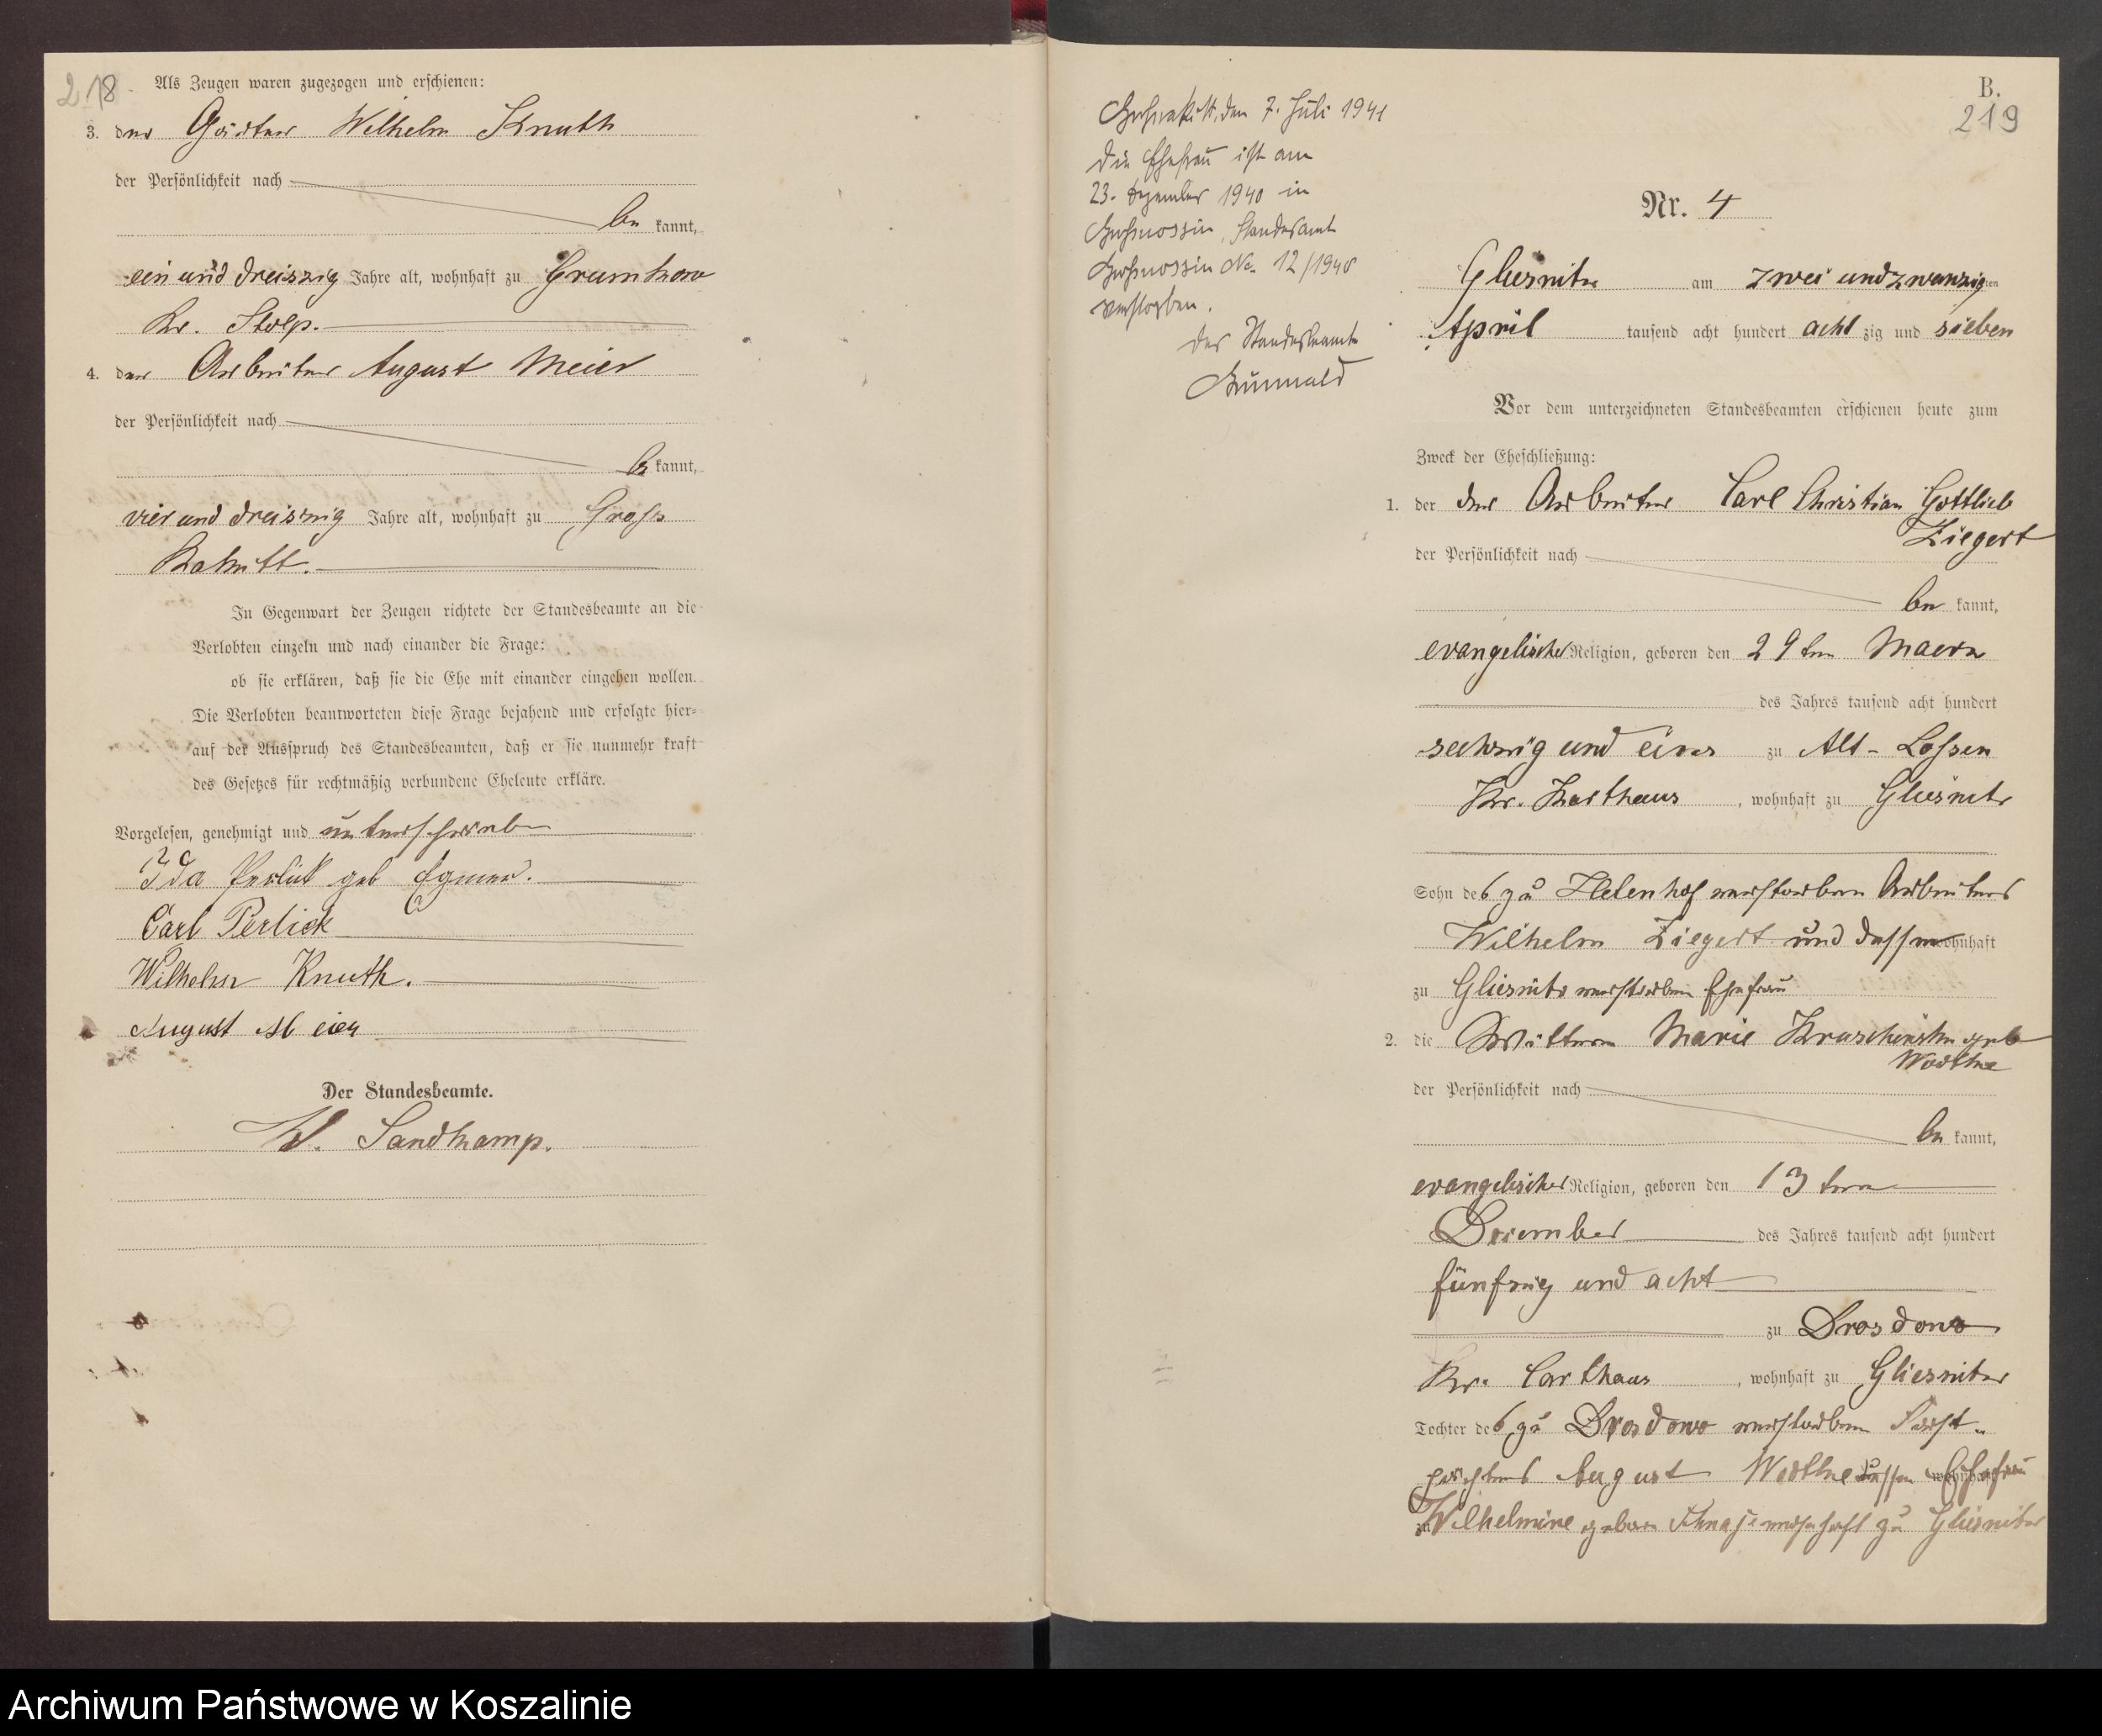 218
Als Zeugen waren zugezogen und erschienen:
3. der Gärtner Wilhelm Knuth
der Persönlichkeit nach
be kannt,
ein und dreiszig Jahre alt, wohnhaft zu Grumkow
Kr. Stolp.
4. der Arbeiter August Meier
der Persönlichkeit nach
be kannt,
vier und dreiszig Jahre alt, wohnhaft zu Gross
Rakitt.
In Gegenwart der Zeugen richtete der Standesbeamte an die
Verlobten einzeln und nach einander die Frage:
ob sie erklären, daß sie die Ehe mit einander eingehen wollen.
Die Verlobten beantworteten diese Frage bejahend und erfolgte hier-
auf der Ausspruch des Standesbeamten, daß er sie nunmehr kraft
des Gesetzes für rechtmäßig verbundene Eheleute erkläre.
Vorgelesen, genehmigt und unterschrieben
Ida Perlick geb
Carl Perlick
Wilhelm Knuth.
August Meier
Der Standesbeamte.
W. Sandkamp.
Großrakitt, den 7. Juli 1941
Die Ehefrau ist am
23. Dezember 1940 in
Großnossin, Standesamt
Großnossin No. 12/1940
verstorben.
Der Standesbeamte
Grunwald
B.
219
Nr. 4
Gliesnitz am zwei und zwanzig ten
April tausend acht hundert acht zig und sieben
Vor dem unterzeichneten Standesbeamten erschienen heute zum
Zweck der Eheschließung:
1. der der Arbeiter Carl Christian Gottlieb
Ziegert
der Persönlichkeit nach
be kannt,
evangelischer Religion, geboren den 29 ten Maerz
des Jahres tausend acht hundert
sechzig und eins zu Alt-Lossen
Kr. Karthaus, wohnhaft zu Gliesnitz
Sohn des zu Helenhof verstorbenen Arbeiters
Wilhelm Ziegert und dessen wohnhaft
zu Gliesnitz verstorbenen Ehefrau
2. die Wittwe Marie geb
der Persönlichkeit nach
be kannt,
evangelischer Religion, geboren den 13 ten
December des Jahres tausend acht hundert
fünfzig und acht
zu Drosdowo
Kr. Carthaus, wohnhaft zu Gliesnitz
Tochter des zu Drosdowo verstorbenen Forst-
August dessen wohnhaft Ehefrau
zu Wilhelmine geborene wohnhaft zu Gliesnitz
Archiwum Państwowe w Koszalinie